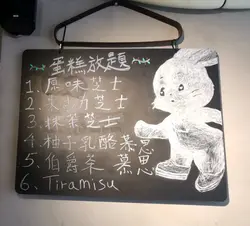 蛋糕放題
1.原味芝士
2.朱古力芝士
3.抹茶芝士
4.柚子乳酪慕思
5.伯爵茶 慕思
6.Tiramisu